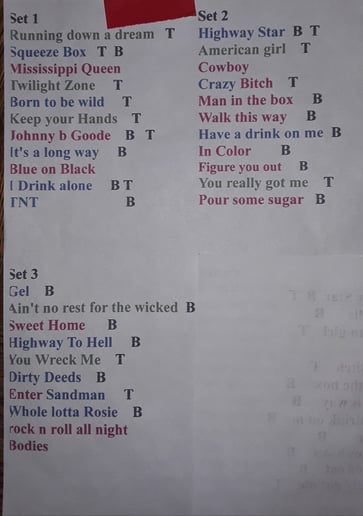 Set 1
Running down a dream T
Squeeze Box T B
Mississippi Queen
Twilight Zone T
Born to be wild T
Keep your Hands T
Johnny b Goode B T
It's a long way B
Blue on Black
I Drink alone B T
TNT B
Set 2
Highway Star B T
American girl T
Cowboy
Crazy Bitch T
Man in the box B
Walk this way B
Have a drink on me B
In Color B
Figure you out B
You really got me T
Pour some sugar B
Set 3
Gel B
Ain't no rest for the wicked B
Sweet Home B
Highway To Hell B
You Wreck Me T
Dirty Deeds B
Enter Sandman T
Whole lotta Rosie B
rock n roll all night
Bodies